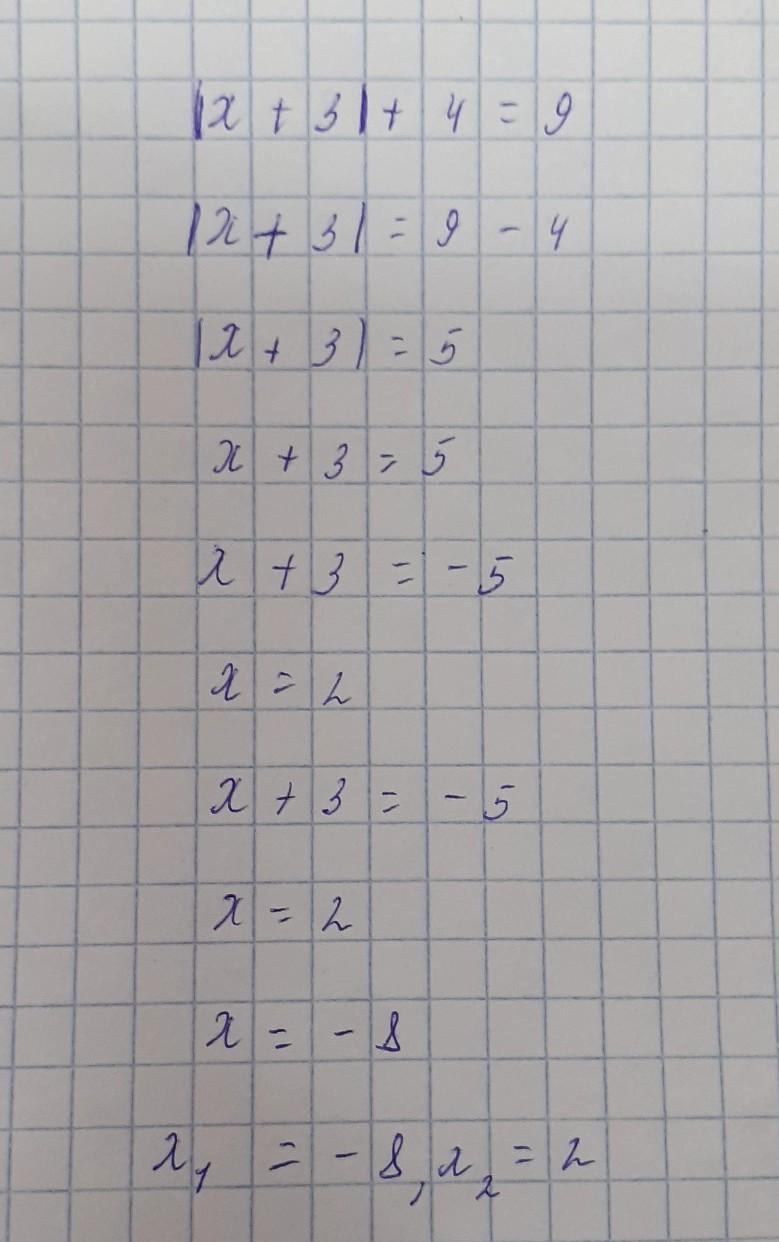 |x + 3| + 4 = 9
|x + 3| = 9 - 4
|x + 3| = 5
x + 3 = 5
x + 3 = - 5
x = 2
x + 3 = - 5
x = 2
x = - 8
x₁ = - 8, x₂ = 2